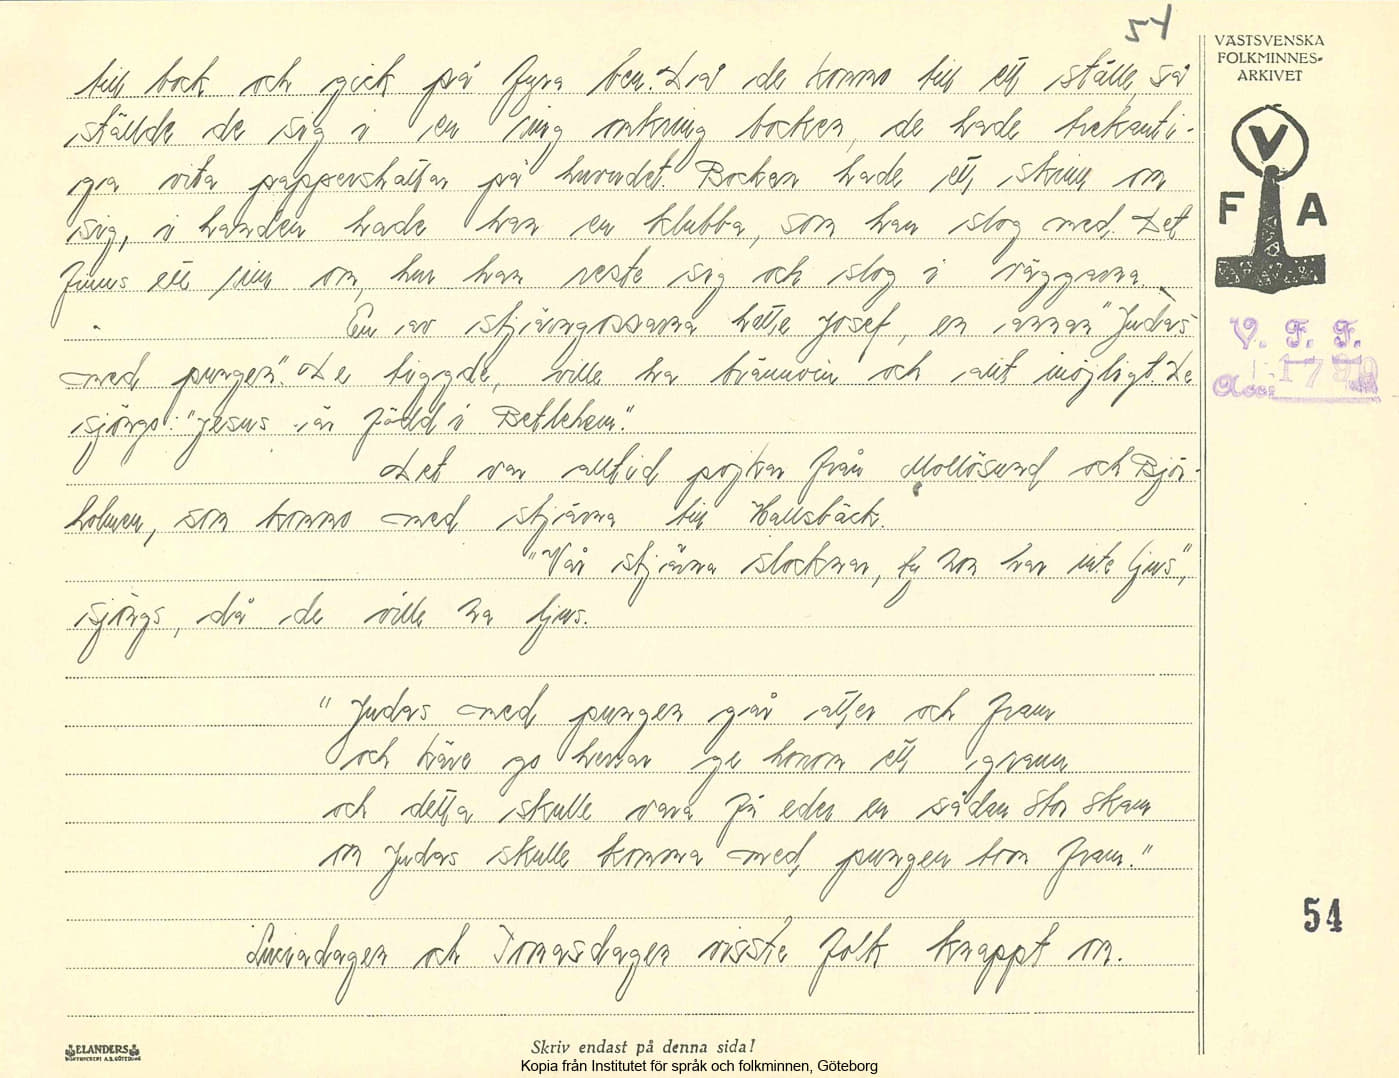 54
VÄSTSVENSKA
FOLKMINNES-
ARKIVET
till bock och gick på fyra ben. Då de kommo till ett ställe, så
ställde de sig i en ring omkring bocken, de hade trekanti-
ga vita pappershättar på huvudet. Bocken hade ett skinn om
sig, i handen hade han en klubba, som han slog med. Det
finns ett rim om, hur han reste sig och slog i väggarna.
En av stjärngossarna hette Josef, en annan "Judas
med pungen". De tiggde, ville ha brännvin och allt möjligt. De
sjöngo: "Jesus är född i Betlehem".
Det var alltid pojkar från Mollösund och Björ-
holmen, som kommo med stjärna till Hallsbäck.
"Vår stjärna slocknar, ty hon har inte ljus",
sjöngs, då de ville ha ljus.
"Judas med pungen går åtter och fram
och käre go herrar ge honom ett gramm
och detta skulle vara för eder en sådan stor skam
om Judas skulle komma med pungen tom fram."
Luciadagen och Tomasdagen visste folk knappt om.
V
F A
V. F. F.
Acc:
54
ELANDERS
Skriv endast på denna sida!
Kopia från Institutet för språk och folkminnen, Göteborg